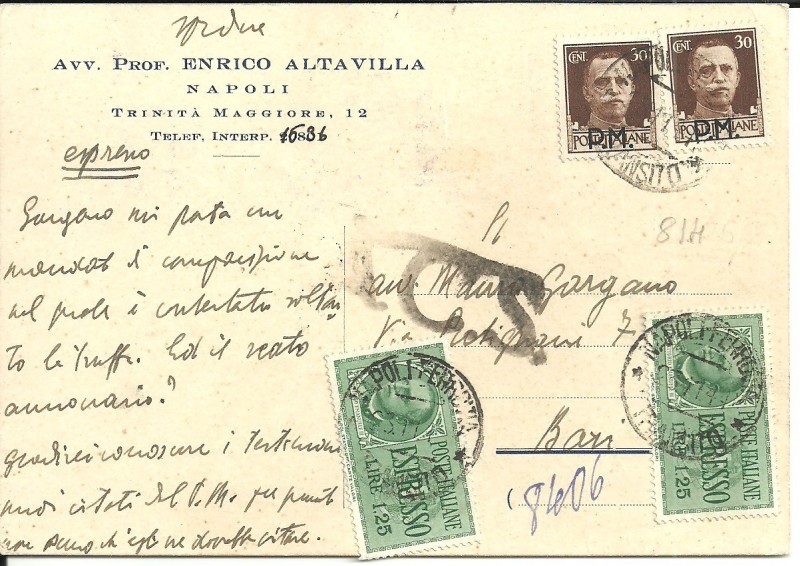 AVV. PROF. ENRICO ALTAVILLA
NAPOLI
TRINITÀ MAGGIORE, 12
TELEF. INTERP.
espresso
Gargano mi porta un
mandato di comparizione
nel quale è contestato soltan
to la truffa. Ed il reato
annonario?
gradirei conoscere i testimoni
citati dal P.M. per
non che egli ne dovrebbe citare.
CENT. 30
POSTE ITALIANE
P.M.
CENT. 30
POSTE ITALIANE
P.M.
TRANSITO
8146
avv. Mauro Gargano
Via 7
Bari
8406
POSTE ITALIANE
ESPRESSO
LIRE 1·25
NAPOLI FERROVIA
POSTE ITALIANE
ESPRESSO
LIRE 1·25
NAPOLI FERROVIA
TRANSITO